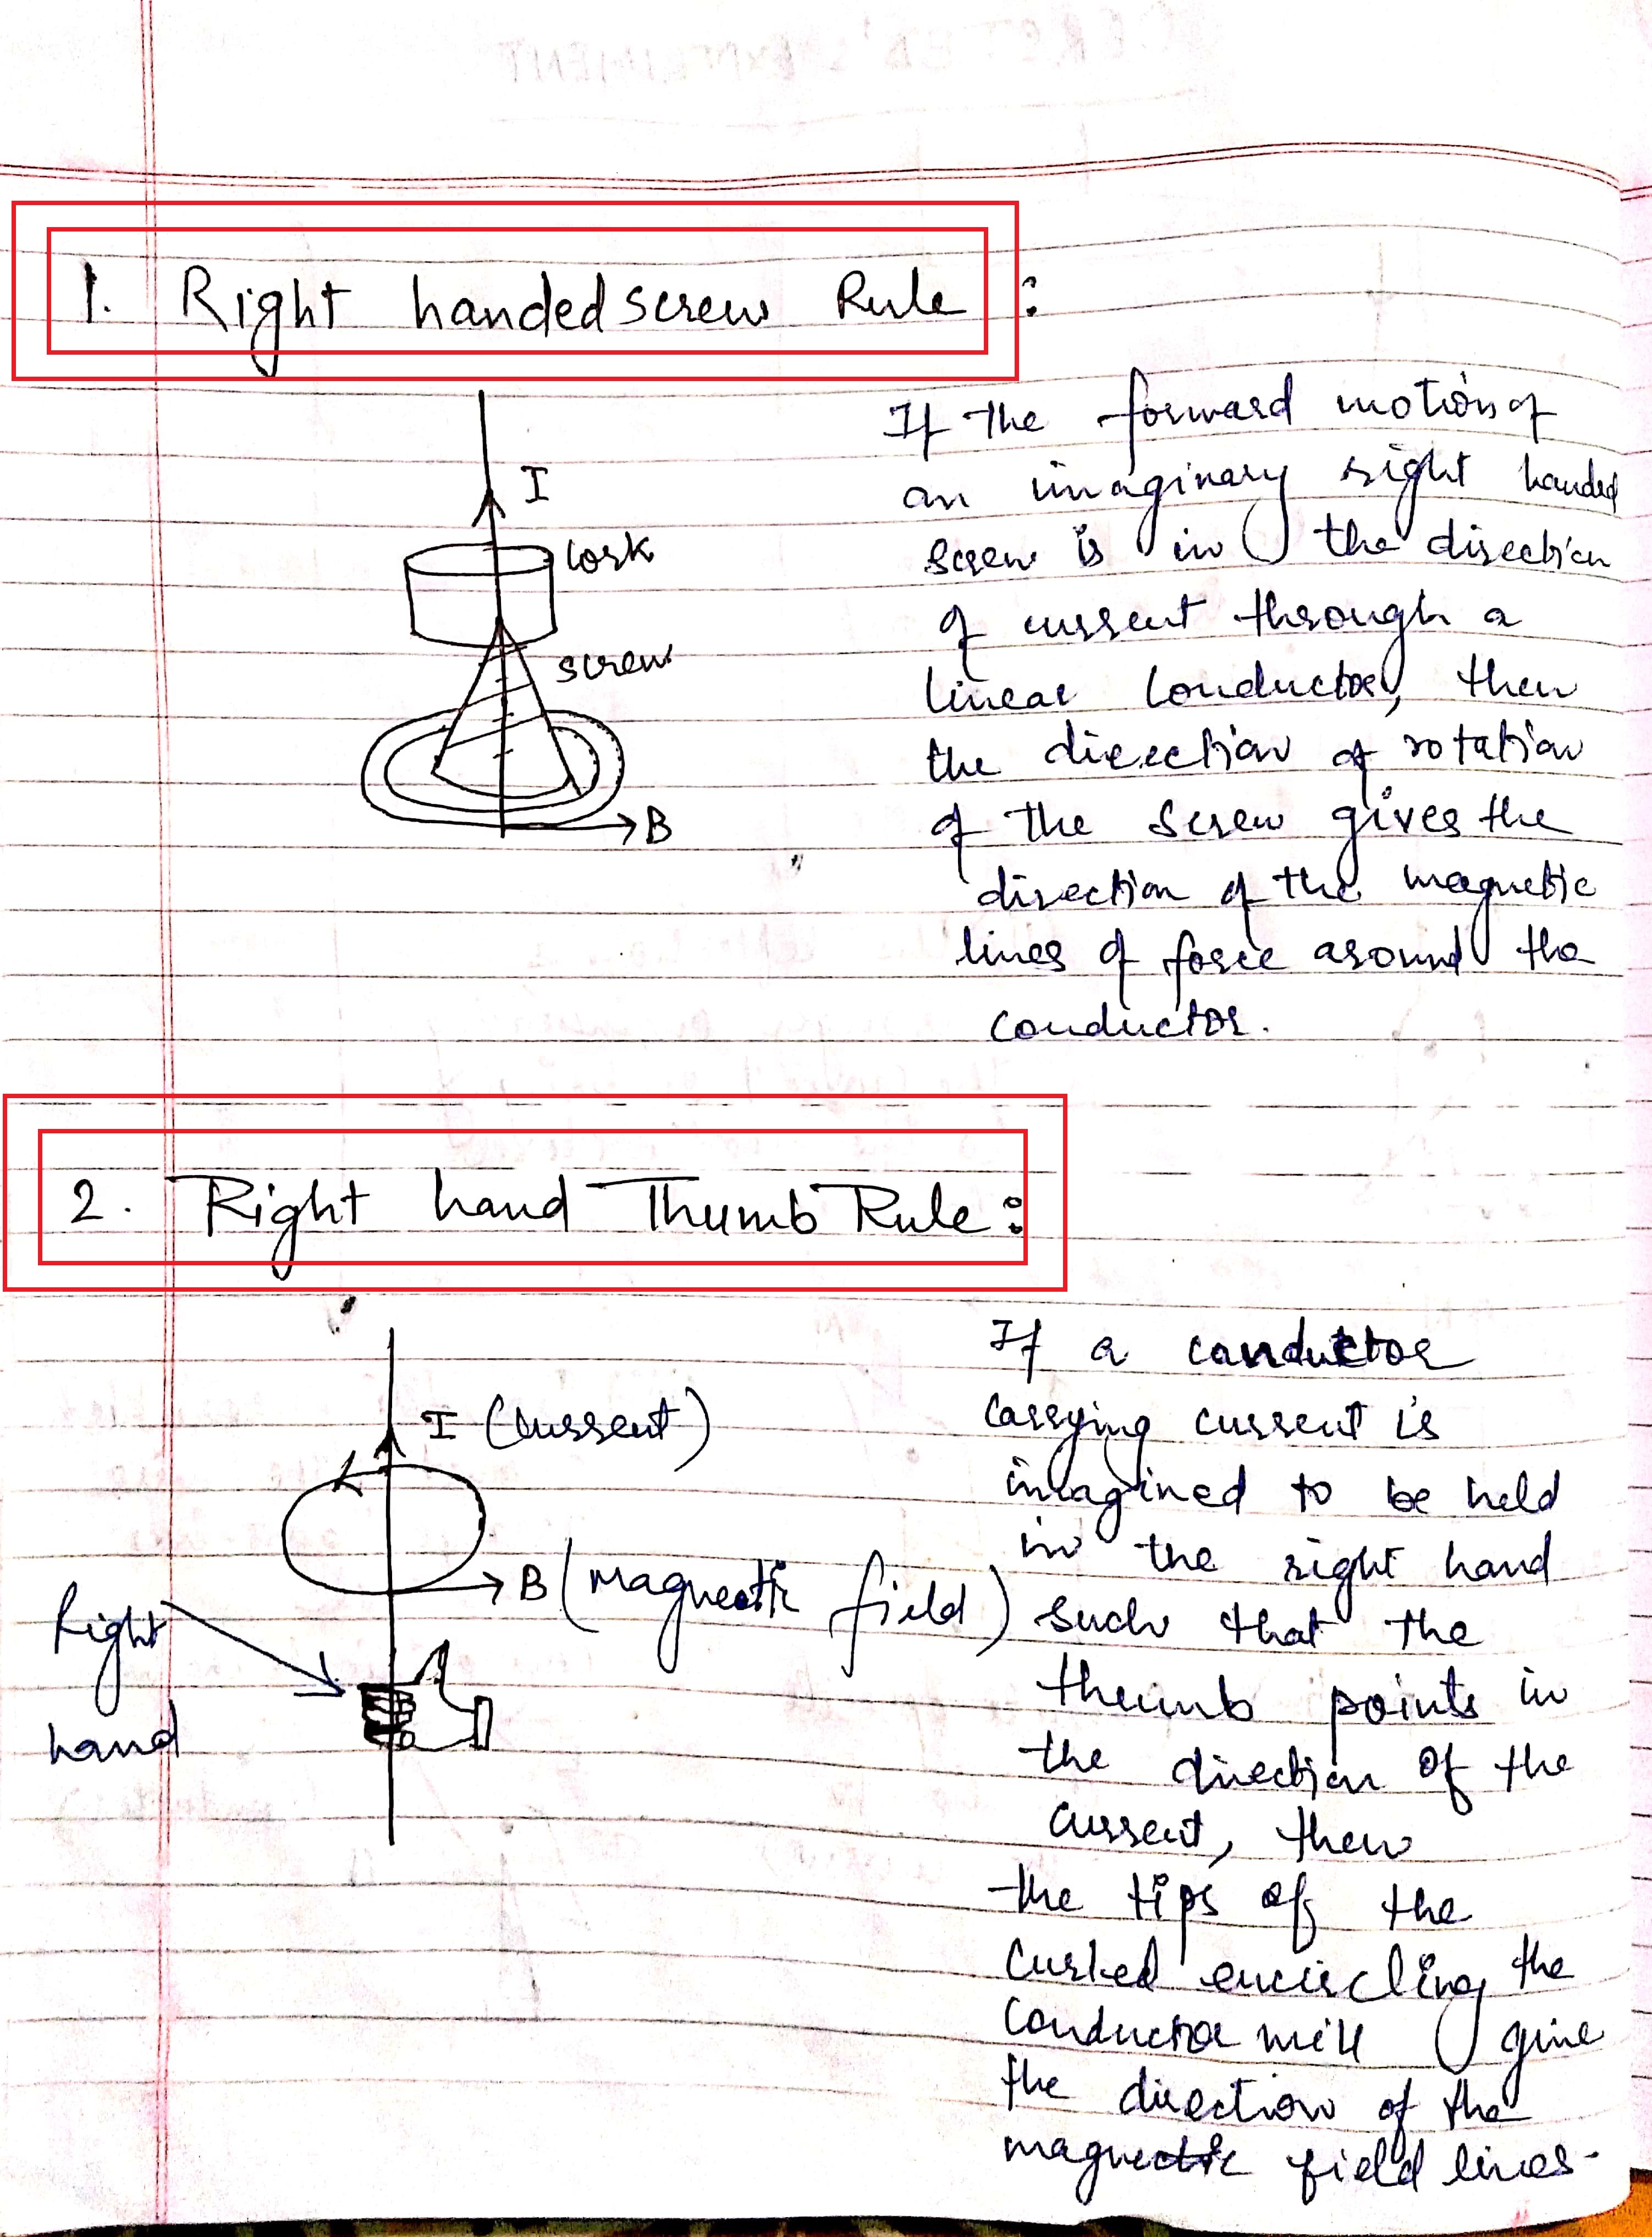 1. Right handed screw Rule :
I
cork
screw
B
If the forward motion of
an imaginary right handed
screw is in the direction
of current through a
linear conductor, then
the direction of rotation
of the screw gives the
direction of the magnetic
lines of force around the
conductor.
2. Right hand Thumb Rule :
I (current)
B (magnetic field)
Right
hand
If a conductor
carrying current is
imagined to be held
in the right hand
such that the
thumb points in
the direction of the
current, then
the tips of the
curled encircling the
conductor will give
the direction of the
magnetic field lines.